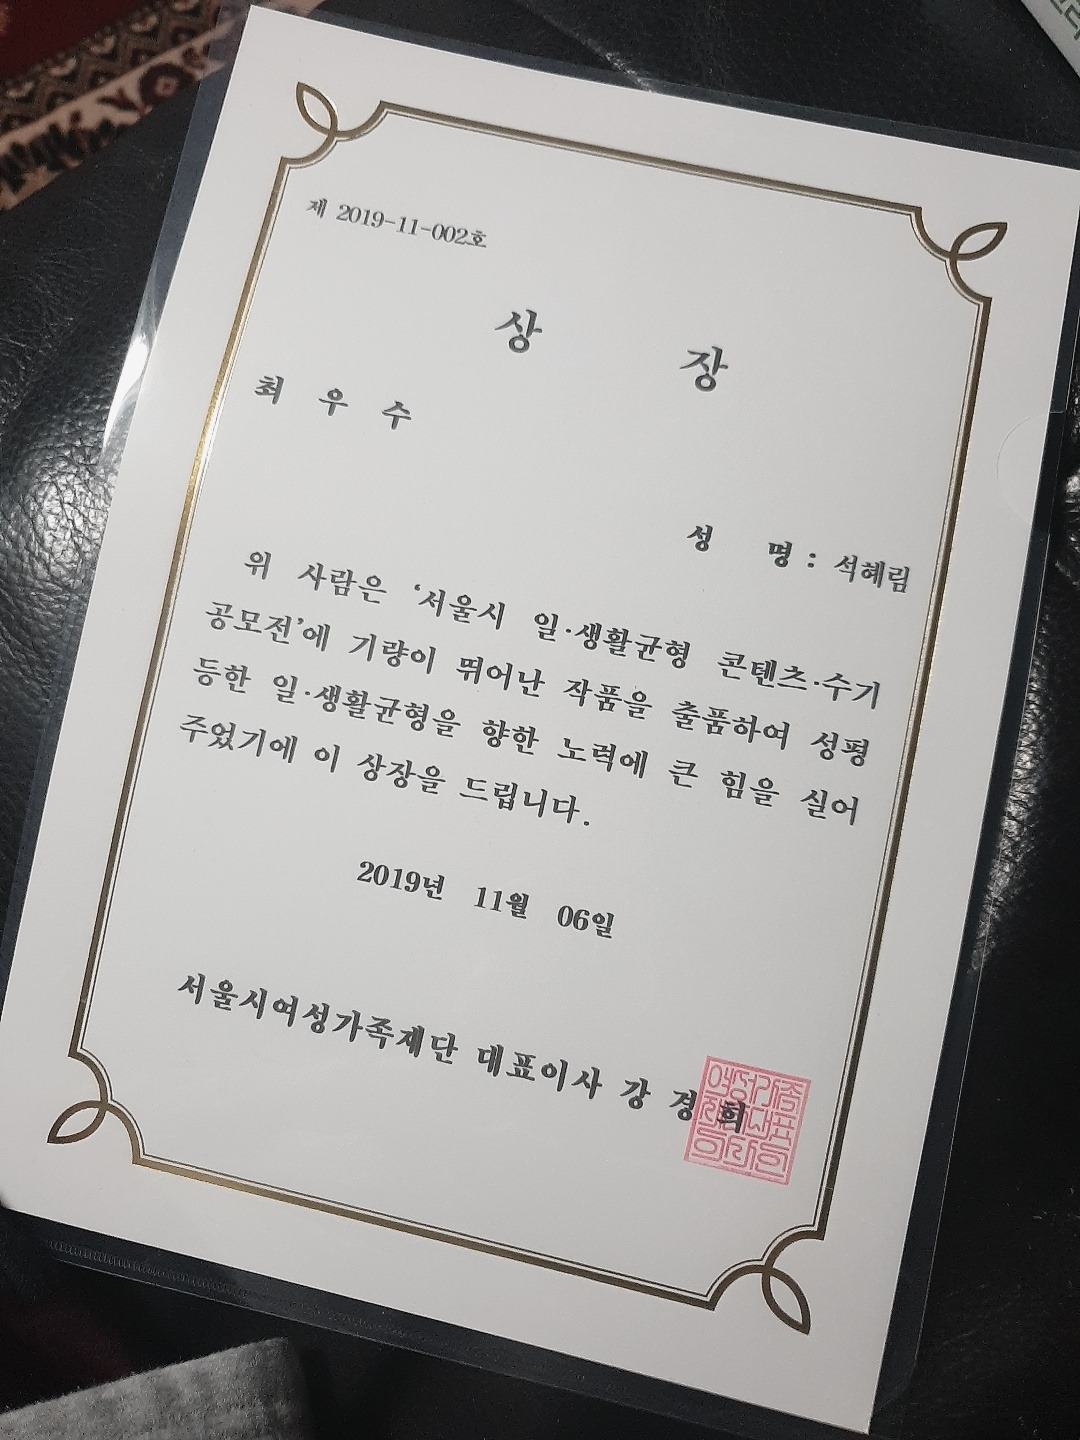 제 2019-11-002호
상 장
최 우 수
성 명 : 석혜림
위 사람은 ‘서울시 일·생활균형 콘텐츠·수기
공모전’에 기량이 뛰어난 작품을 출품하여 성평
등한 일·생활균형을 향한 노력에 큰 힘을 실어
주었기에 이 상장을 드립니다.
2019년 11월 06일
서울시여성가족재단 대표이사 강 경 희